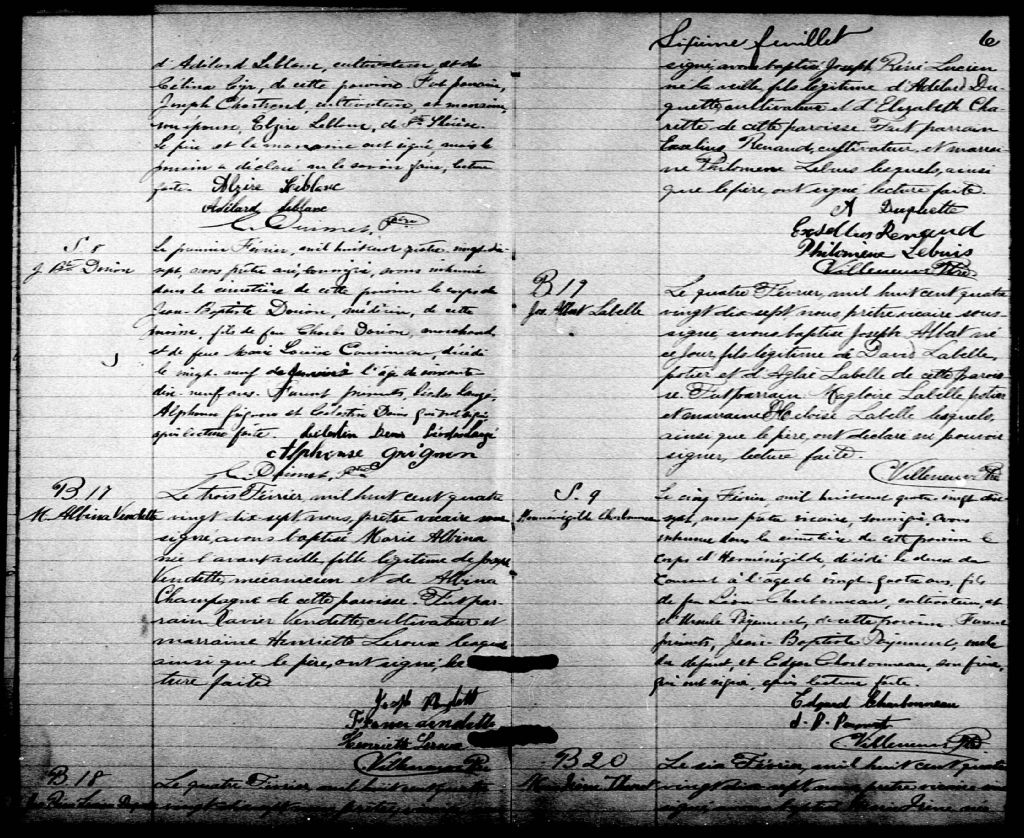 d'Adélard Leblanc, cultivateur et de
Célina Cyr, de cette paroisse. Fut parrain,
Joseph Chartrand, cultivateur, et marraine,
son épouse, Elzire Leblanc, de Ste Thérèse.
Le père et la marraine ont signé mais le
parrain a déclaré ne le savoir faire, lecture
faite. Alzire Leblanc
Adélard Leblanc
Ptre
S. 8
J. Bte Dorion
Le premier Février, mil huit cent quatre vingt dix
sept, nous prêtre curé, soussigné, avons inhumé
dans le cimetière de cette paroisse le corps de
Jean-Baptiste Dorion, médecin, de cette
paroisse, fils de feu Charles Dorion, marchand,
et de feue Marie Louise decédé
le vingt neuf de Janvier à l'âge de soixante
dix neuf ans. Furent présents,
Alphonse Grignon et Célestin
qui lecture faite.
Alphonse Grignon
Ptre
B 17
M. Albina Vendette
Le trois Février, mil huit cent quatre
vingt dix-sept nous, prêtre vicaire sous
signé, avons baptisé Marie Albina
née l'avant veille fille légitime de Joseph
Vendette, mécanicien et de Albina
Champagne de cette paroisse. Fut par-
rain Xavier Vendette, cultivateur et
marraine Henriette Leroux lesquels
ainsi que le père, ont signé lec
ture faite
Joseph
Henriette Leroux
Villeneuve Ptre
B 18
Le quatre Février, mil huit cent quatre
vingt dix sept nous prêtre
Sixième feuillet 6
signé, avons baptisé Joseph René Lucien
né la veille fils légitime d'Adélard Du-
quette, cultivateur et d'Elizabeth Cha-
rette de cette paroisse Fut parrain
Renaud, cultivateur, et marrai-
ne Philomène Lebuis lesquels, ainsi
que le père, ont signé lecture faite.
A Duquette
Renaud
Philomène Lebuis
Villeneuve Ptre
B 19
Jos. Albat Labelle
Le quatre Février, mil huit cent quatre
vingt dix-sept nous prêtre vicaire sous-
signé, avons baptisé Joseph Albat né
ce jour, fils légitime de David Labelle,
potier et d'Aglaé Labelle de cette parois-
se. Fut parrain Magloire Labelle potier
et marraine Héloise Labelle lesquels,
ainsi que le père, ont déclaré ne pouvoir
signer, lecture faite.
Villeneuve Ptre
S. 9
Herménégilde Charbonneau
Le cinq Février mil huit cent quatre vingt dix
sept, nous prêtre vicaire, soussigné avons
inhumé dans le cimetière de cette paroisse le
corps d'Herménégilde, décédé le deux du
courant à l'âge de vingt quatre ans, fils
de feu Léon Charbonneau, cultivateur, et
d'Ursule de cette paroisse. Furent
présents, Jean-Baptiste oncle
du défunt, et Edgar Charbonneau, son frère,
qui ont signé, après lecture faite.
Edgard Charbonneau
Villeneuve Ptre
B 20
Le six Février, mil huit cent quatre
vingt dix sept nous prêtre vicaire sous
signé avons baptisé Marie Irène